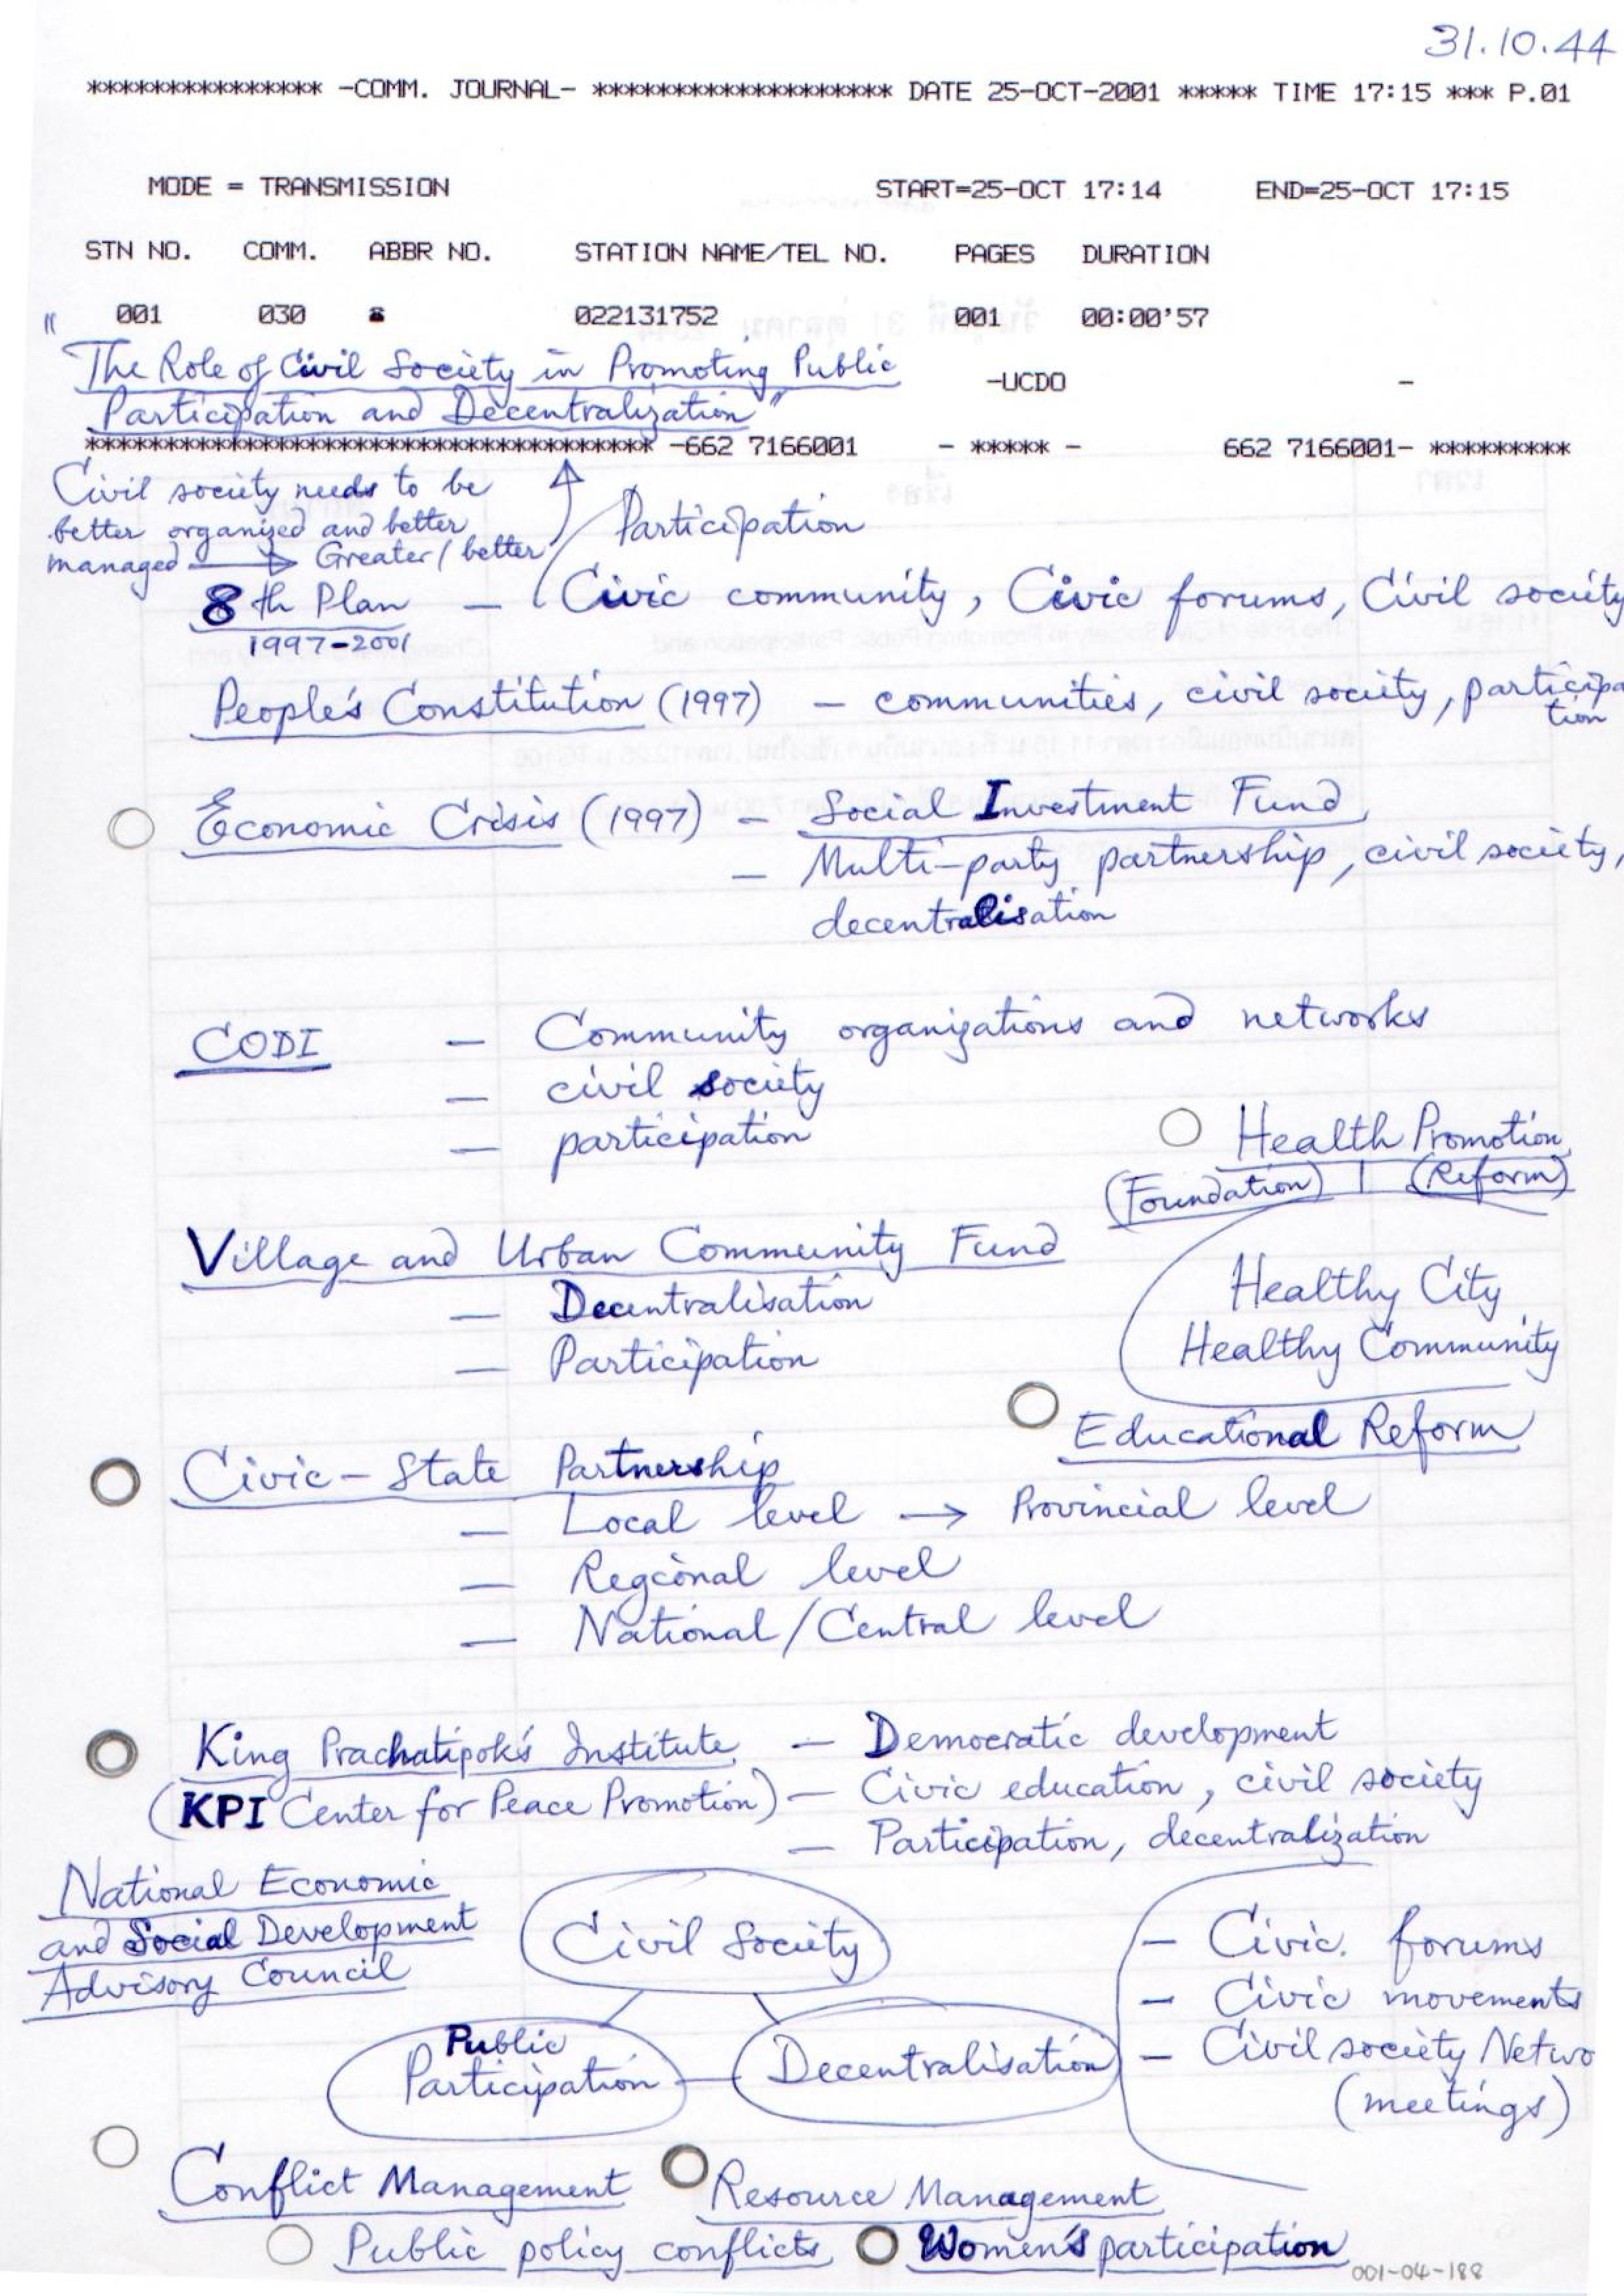 31.10.44
*************** -COMM. JOURNAL- ******************* DATE 25-OCT-2001 ***** TIME 17:15 *** P.01
MODE = TRANSMISSION START=25-OCT 17:14 END=25-OCT 17:15
STN NO. COMM. ABBR NO. STATION NAME/TEL NO. PAGES DURATION
001 030 ☎ 022131752 001 00:00'57
"The Role of Civil Society in Promoting Public
-UCDO -
Participation and Decentralization"
************************************ -662 7166001 - ***** - 662 7166001- *********
Civil society needs to be
better organized and better
managed → Greater/better
Participation
8th Plan — Civic community, Civic forums, Civil society
1997-2001
People's Constitution (1997) — communities, civil society, participa
tion
Economic Crisis (1997) — Social Investment Fund
— Multi-party partnership, civil society,
decentralisation
CODI — Community organizations and networks
— civil society
— participation
Health Promotion
(Foundation) | (Reform)
Village and Urban Community Fund
— Decentralisation
— Participation
Healthy City
Healthy Community
Educational Reform
Civic-State Partnership
— Local level → Provincial level
— Regional level
— National/Central level
King Prachatipok's Institute — Democratic development
(KPI Center for Peace Promotion) — Civic education, civil society
— Participation, decentralization
National Economic
and Social Development
Advisory Council
Civil Society
Public
Participation
Decentralisation
— Civic forums
— Civic movements
— Civil society Netwo
(meetings)
Conflict Management
Resource Management
Public policy conflicts
Women's participation
001-04-188